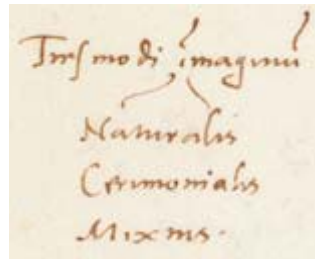 Tres modi imaginū
Naturalis
Cerimonialis
Mixtus.